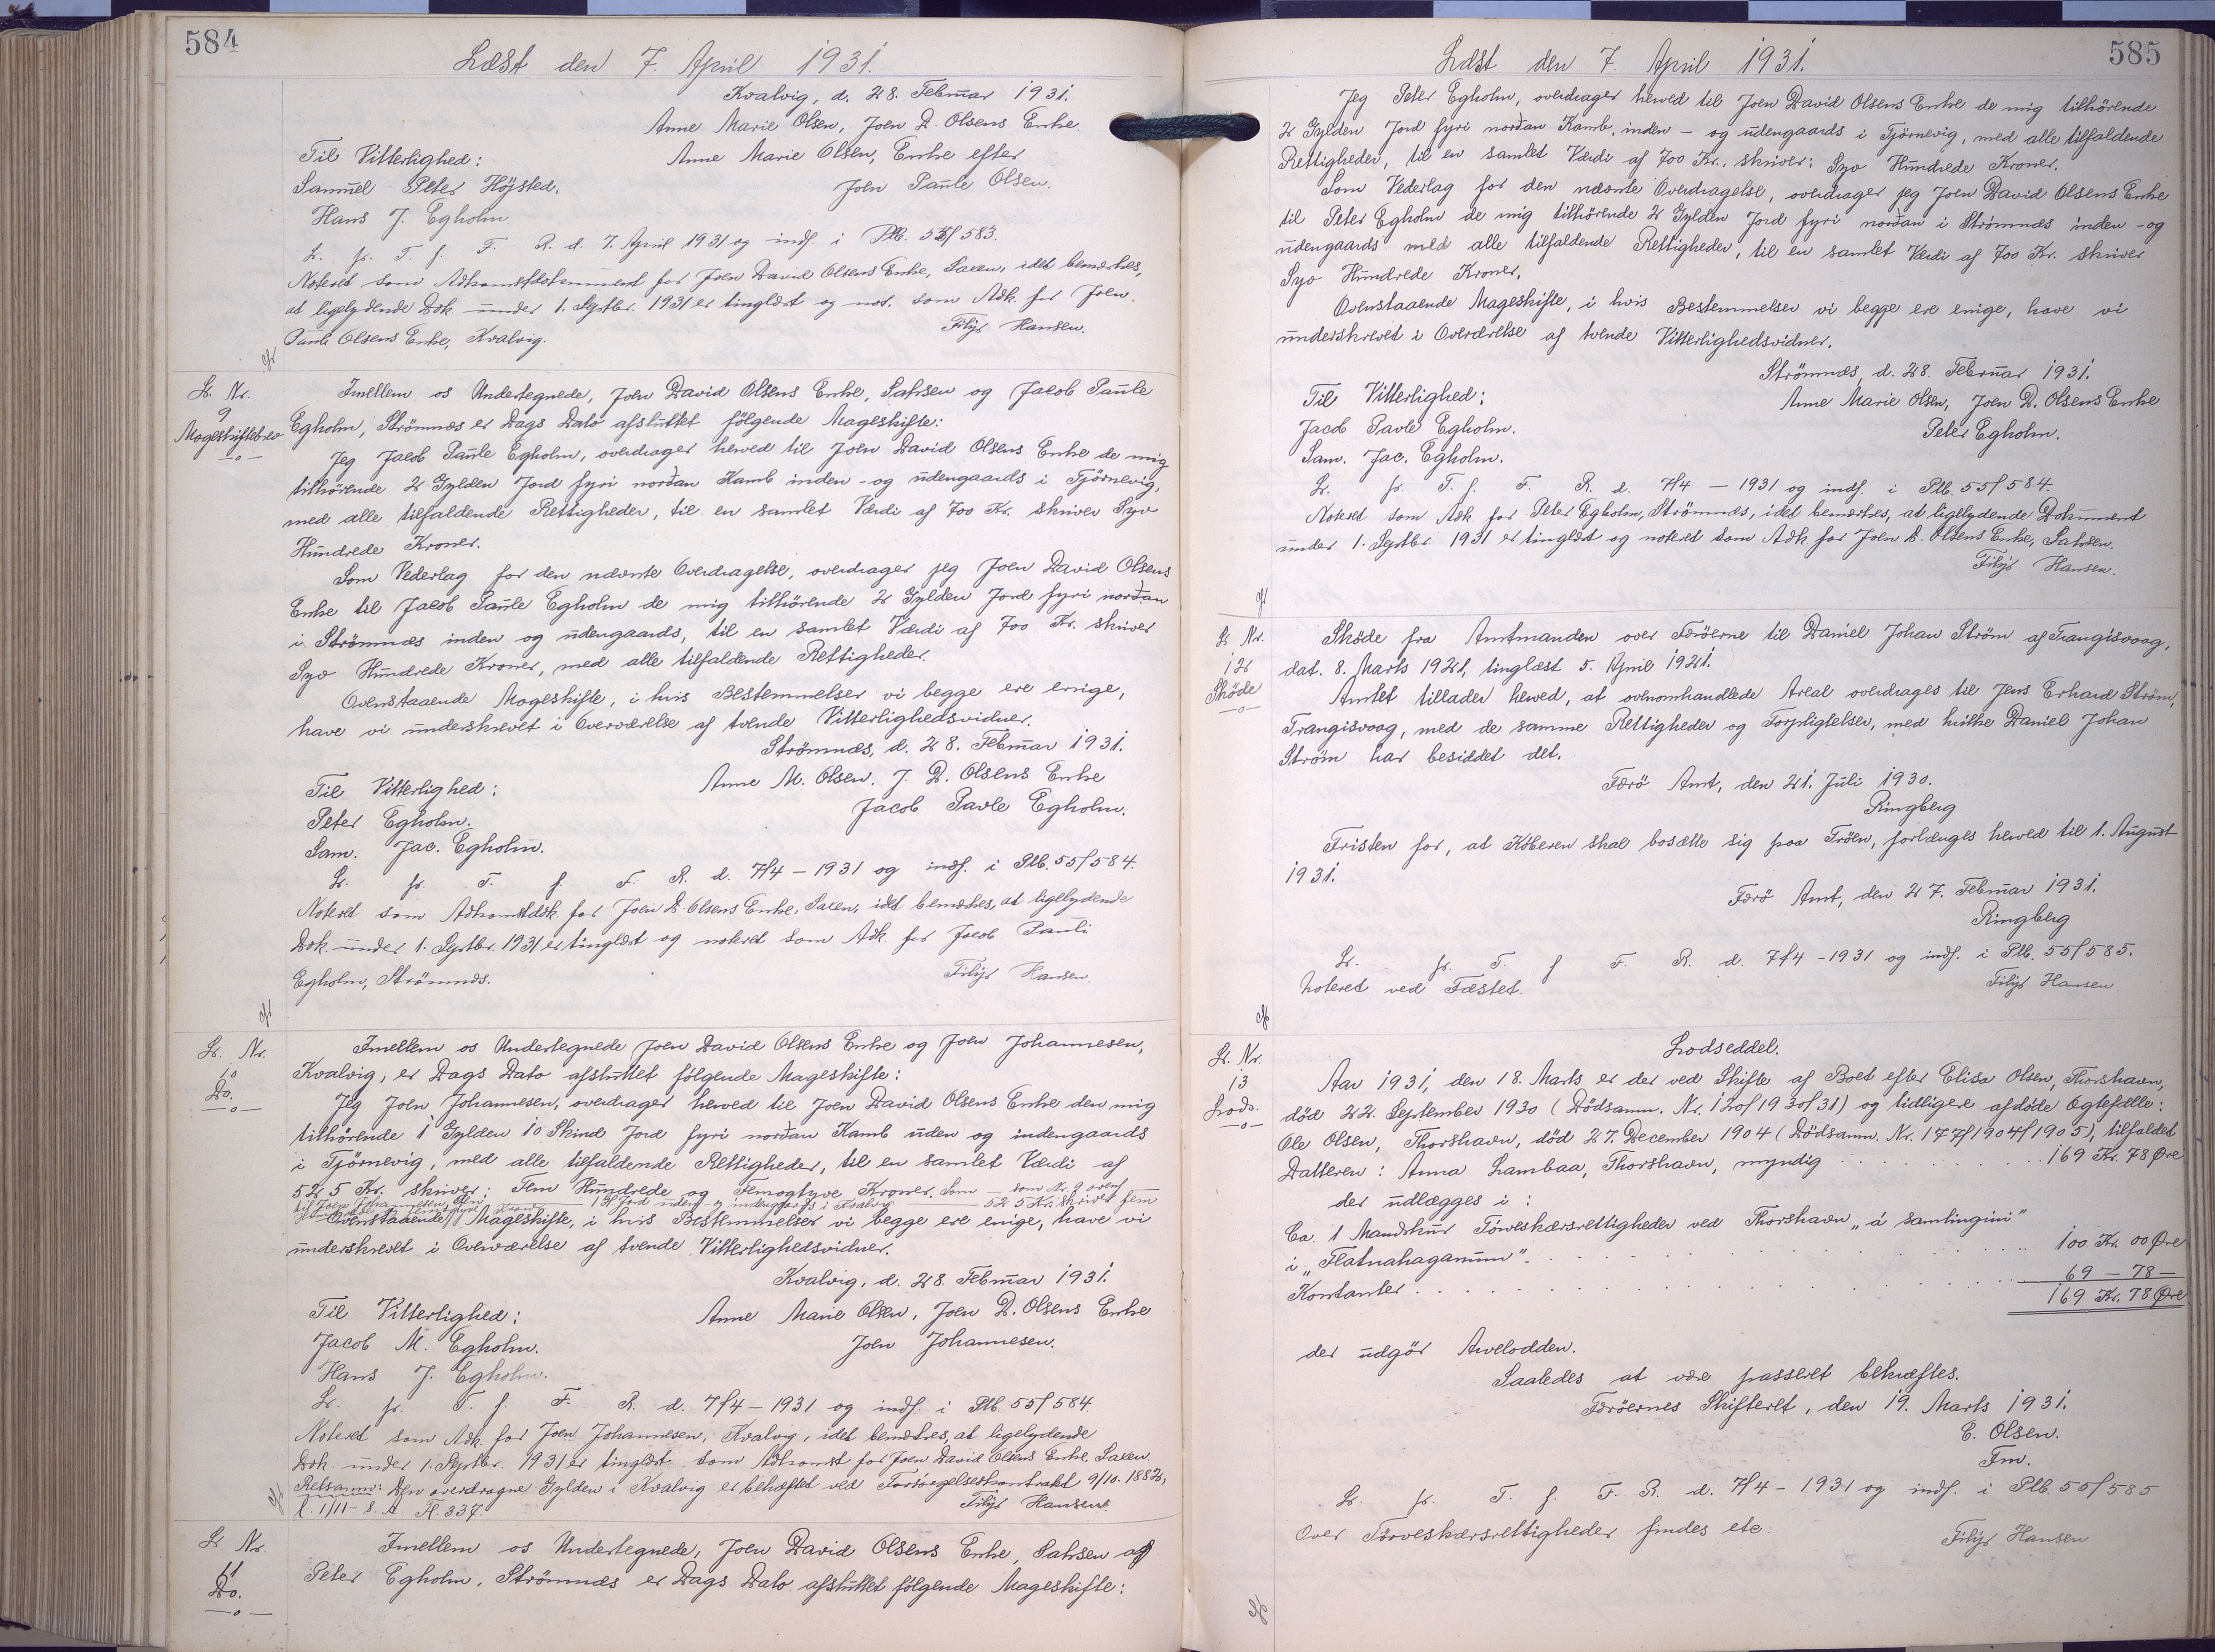 584
Læst den 7. April 1931.
Kvalvig, d. 28. Februar 1931.
Anne Marie Olsen, Joen D. Olsens Enke.
Til Vitterlighed:
Anne Marie Olsen, Enke efter
Samuel Peter Höjsted.
Joen Paule Olsen.
Hans J. Egholm
L. pr. T. f. F. R. d. 7. April 1931 og indf. i Plb. 55/583.
Noteret som Adkomstdokument for Joen David Olsens Enke, Saxen, idet bemærkes,
at ligelydende Dok. under 1. Septbr. 1931 er tinglæst og not. som Adk. for Joen
Paule Olsens Enke, Kvalvig.
Filip Hansen.
L. Nr.
9
Mageskiftebrev
Imellem os Undertegnede, Joen David Olsens Enke, Saksen og Jacob Paule
Egholm, Strömnæs er Dags Dato afsluttet fölgende Mageskifte:
Jeg Jacob Paule Egholm, overdrager herved til Joen David Olsens Enke de mig
tilhörende 2 Gylden Jord fyri norðan Kamb inden- og udengaards i Tjörnevig,
med alle tilfaldende Rettigheder, til en samlet Værdi af 700 Kr. skriver Syv
Hundrede Kroner.
Som Vederlag for den nævnte Overdragelse, overdrager jeg Joen David Olsens
Enke til Jacob Paule Egholm de mig tilhörende 2 Gylden Jord fyri norðan
i Strömnæs inden og udengaards, til en samlet Værdi af 700 Kr. skriver
Syv Hundrede Kroner, med alle tilfaldende Rettigheder.
Ovenstaaende Mageskifte, i hvis Bestemmelser vi begge ere enige,
have vi underskrevet i Overværelse af tvende Vitterlighedsvidner.
Strömnæs, d. 28. Februar 1931.
Til Vitterlighed:
Anne M. Olsen, J. D. Olsens Enke
Peter Egholm.
Jacob Pavle Egholm.
Sam. Jac. Egholm.
L. pr. T. f. F. R. d. 7/4 - 1931 og indf. i Plb. 55/584.
Noteret som Adkomstdok. for Joen D. Olsens Enke, Saxen, idet bemærkes, at ligelydende
Dok. under 1. Septbr. 1931 er tinglæst og noteret som Adk. for Jacob Pauli
Egholm, Strömnæs.
Filip Hansen.
L. Nr.
10
Do.
Imellem os Undertegnede Joen David Olsens Enke og Joen Johannesen,
Kvalvig, er Dags Dato afsluttet fölgende Mageskifte:
Jeg Joen Johannesen, overdrager herved til Joen David Olsens Enke den mig
tilhörende 1 Gylden 10 Skind Jord fyri norðan Kamb uden og indengaards
i Tjörnevig, med alle tilfaldende Rettigheder, til en samlet Værdi af
525 Kr. skriver: Fem Hundrede og Femogtyve Kroner. Som — som Nr. 9 ovenf
til Joen Johannesen — 1 Jord uden og indengaards i Kvalvig — 525 Kr. skriver fem
Ovenstaaende Mageskifte, i hvis Bestemmelser vi begge ere enige, have vi
underskrevet i Overværelse af tvende Vitterlighedsvidner.
Kvalvig, d. 28. Februar 1931.
Til Vitterlighed:
Anne Marie Olsen, Joen D. Olsens Enke
Jacob M. Egholm.
Joen Johannesen.
Hans J. Egholm.
L. pr. T. f. F. R. d. 7/4 - 1931 og indf. i Plb. 55/584.
Noteret som Adk. for Joen Johannesen, Kvalvig, idet bemærkes, at ligelydende
Dok. under 1. Septbr. 1931 er tinglæst som Adkomst for Joen David Olsens Enke, Saxen.
Retsanm: Den overdragne Gylden i Kvalvig er behæftet ved Forsörgelseskontrakt 9/10. 1882,
1/11 - s. A. Fl. 337.
Filip Hansen.
L. Nr.
11
Do.
Imellem os Undertegnede, Joen David Olsens Enke, Saksen og
Peter Egholm, Strömnæs er Dags Dato afsluttet fölgende Mageskifte:
585
Læst den 7. April 1931.
Jeg Peter Egholm, overdrager herved til Joen David Olsens Enke de mig tilhörende
2 Gylden Jord fyri norðan Kamb, inden- og udengaards i Tjörnevig, med alle tilfaldende
Rettigheder, til en samlet Værdi af 700 Kr., skriver: Syv Hundrede Kroner.
Som Vederlag for den nævnte Overdragelse, overdrager jeg Joen David Olsens Enke
til Peter Egholm de mig tilhörende 2 Gylden Jord fyri norðan i Strömnæs inden-og
udengaards med alle tilfaldende Rettigheder, til en samlet Værdi af 700 Kr. skriver
Syv Hundrede Kroner.
Ovenstaaende Mageskifte, i hvis Bestemmelser vi begge ere enige, have vi
underskrevet i Overværelse af tvende Vitterlighedsvidner.
Strömnæs, d. 28. Februar 1931.
Til Vitterlighed:
Anne Marie Olsen, Joen D. Olsens Enke
Jacob Pavle Egholm.
Peter Egholm.
Sam. Jac. Egholm.
L. pr. T. f. F. R. d. 7/4 - 1931 og indf. i Plb. 55/584.
Noteret som Adk. for Peter Egholm, Strömnæs, idet bemærkes, at ligelydende Dokument
under 1. Septbr. 1931 er tinglæst og noteret som Adk. for Joen D. Olsens Enke, Saksen.
Filip Hansen.
L. Nr.
12
Sköde
Sköde fra Amtmanden over Færöerne til Daniel Johan Ström af Trangisvaag,
dat. 8. Marts 1921, tinglæst 5. April 1921.
Amtet tillader herved, at ovenomhandlede Areal overdrages til Jens Erhard Ström,
Trangisvaag, med de samme Rettigheder og Forpligtelser, med hvilke Daniel Johan
Ström har besiddet det.
Færö Amt, den 21. Juli 1930.
Ringberg
Fristen for, at Köberen skal bosætte sig paa Tröen, forlænges herved til 1. August
1931.
Færö Amt, den 27. Februar 1931.
Ringberg
L. pr. T. f. F. R. d. 7/4 - 1931 og indf. i Plb. 55/585.
Noteret ved Fæstet.
Filip Hansen.
L. Nr.
13
Lods.
Lodseddel.
Aar 1931, den 18. Marts er der ved Skifte af Boet efter Elisa Olsen, Thorshavn,
död 22. September 1930 (Dödsanm. Nr. 120/1930/31) og tidligere afdöde Ægtefælle:
Ole Olsen, Thorshavn, död 27. December 1904 (Dödsanm. Nr. 177/1904/1905), tilfaldet
Datteren: Anna Lambaa, Thorshavn, myndig . . . 169 Kr. 78 Øre
der udlægges i:
Ca. 1 Mandskur Törveskærsrettigheder ved Thorshavn „á Samlingini"
i „Flatnahaganum". . . . 100 Kr. 00 Øre
Kontanter . . . 69 - 78 -
169 Kr. 78 Øre
der udgör Arvelodden.
Saaledes at være passeret bekræftes.
Færöernes Skifteret, den 19. Marts 1931.
E. Olsen.
Fm.
L. pr. T. f. F. R. d. 7/4 - 1931 og indf. i Plb. 55/585
Over Törveskærsrettigheder findes etc.
Filip Hansen